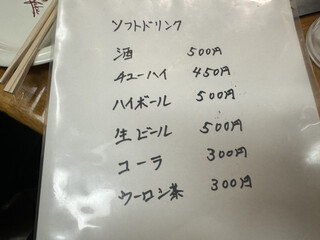 ソフトドリンク
酒 500円
チューハイ 450円
ハイボール 500円
生ビール 500円
コーラ 300円
ウーロン茶 300円